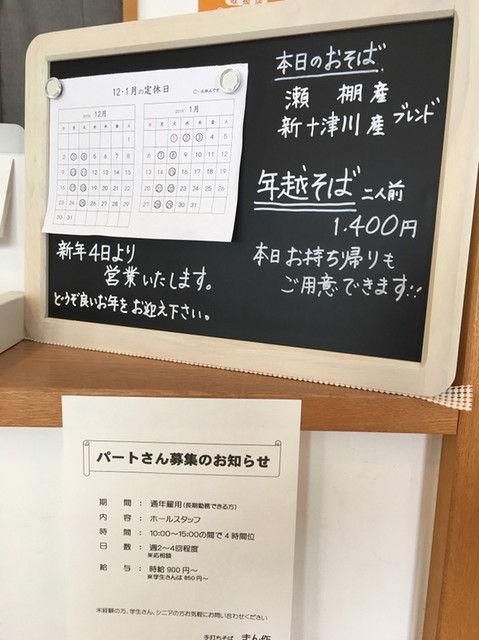 12・1月の定休日
2018 12月
2019 1月
新年4日より
営業いたします。
どうぞ良いお年をお迎え下さい。
本日のおそば
瀬棚産
新十津川産 ブレンド
年越そば 二人前
1,400円
本日お持ち帰りも
ご用意できます!!
パートさん募集のお知らせ
期間：通年雇用(長期勤務できる方)
内容：ホールスタッフ
時間：10:00～15:00の間で4時間位
日数：週2～4回程度
※応相談
給与：時給900円～
※学生さんは850円～
※経験の方、学生さん、シニアの方お気軽にお問い合わせください
手打ちそば まん作